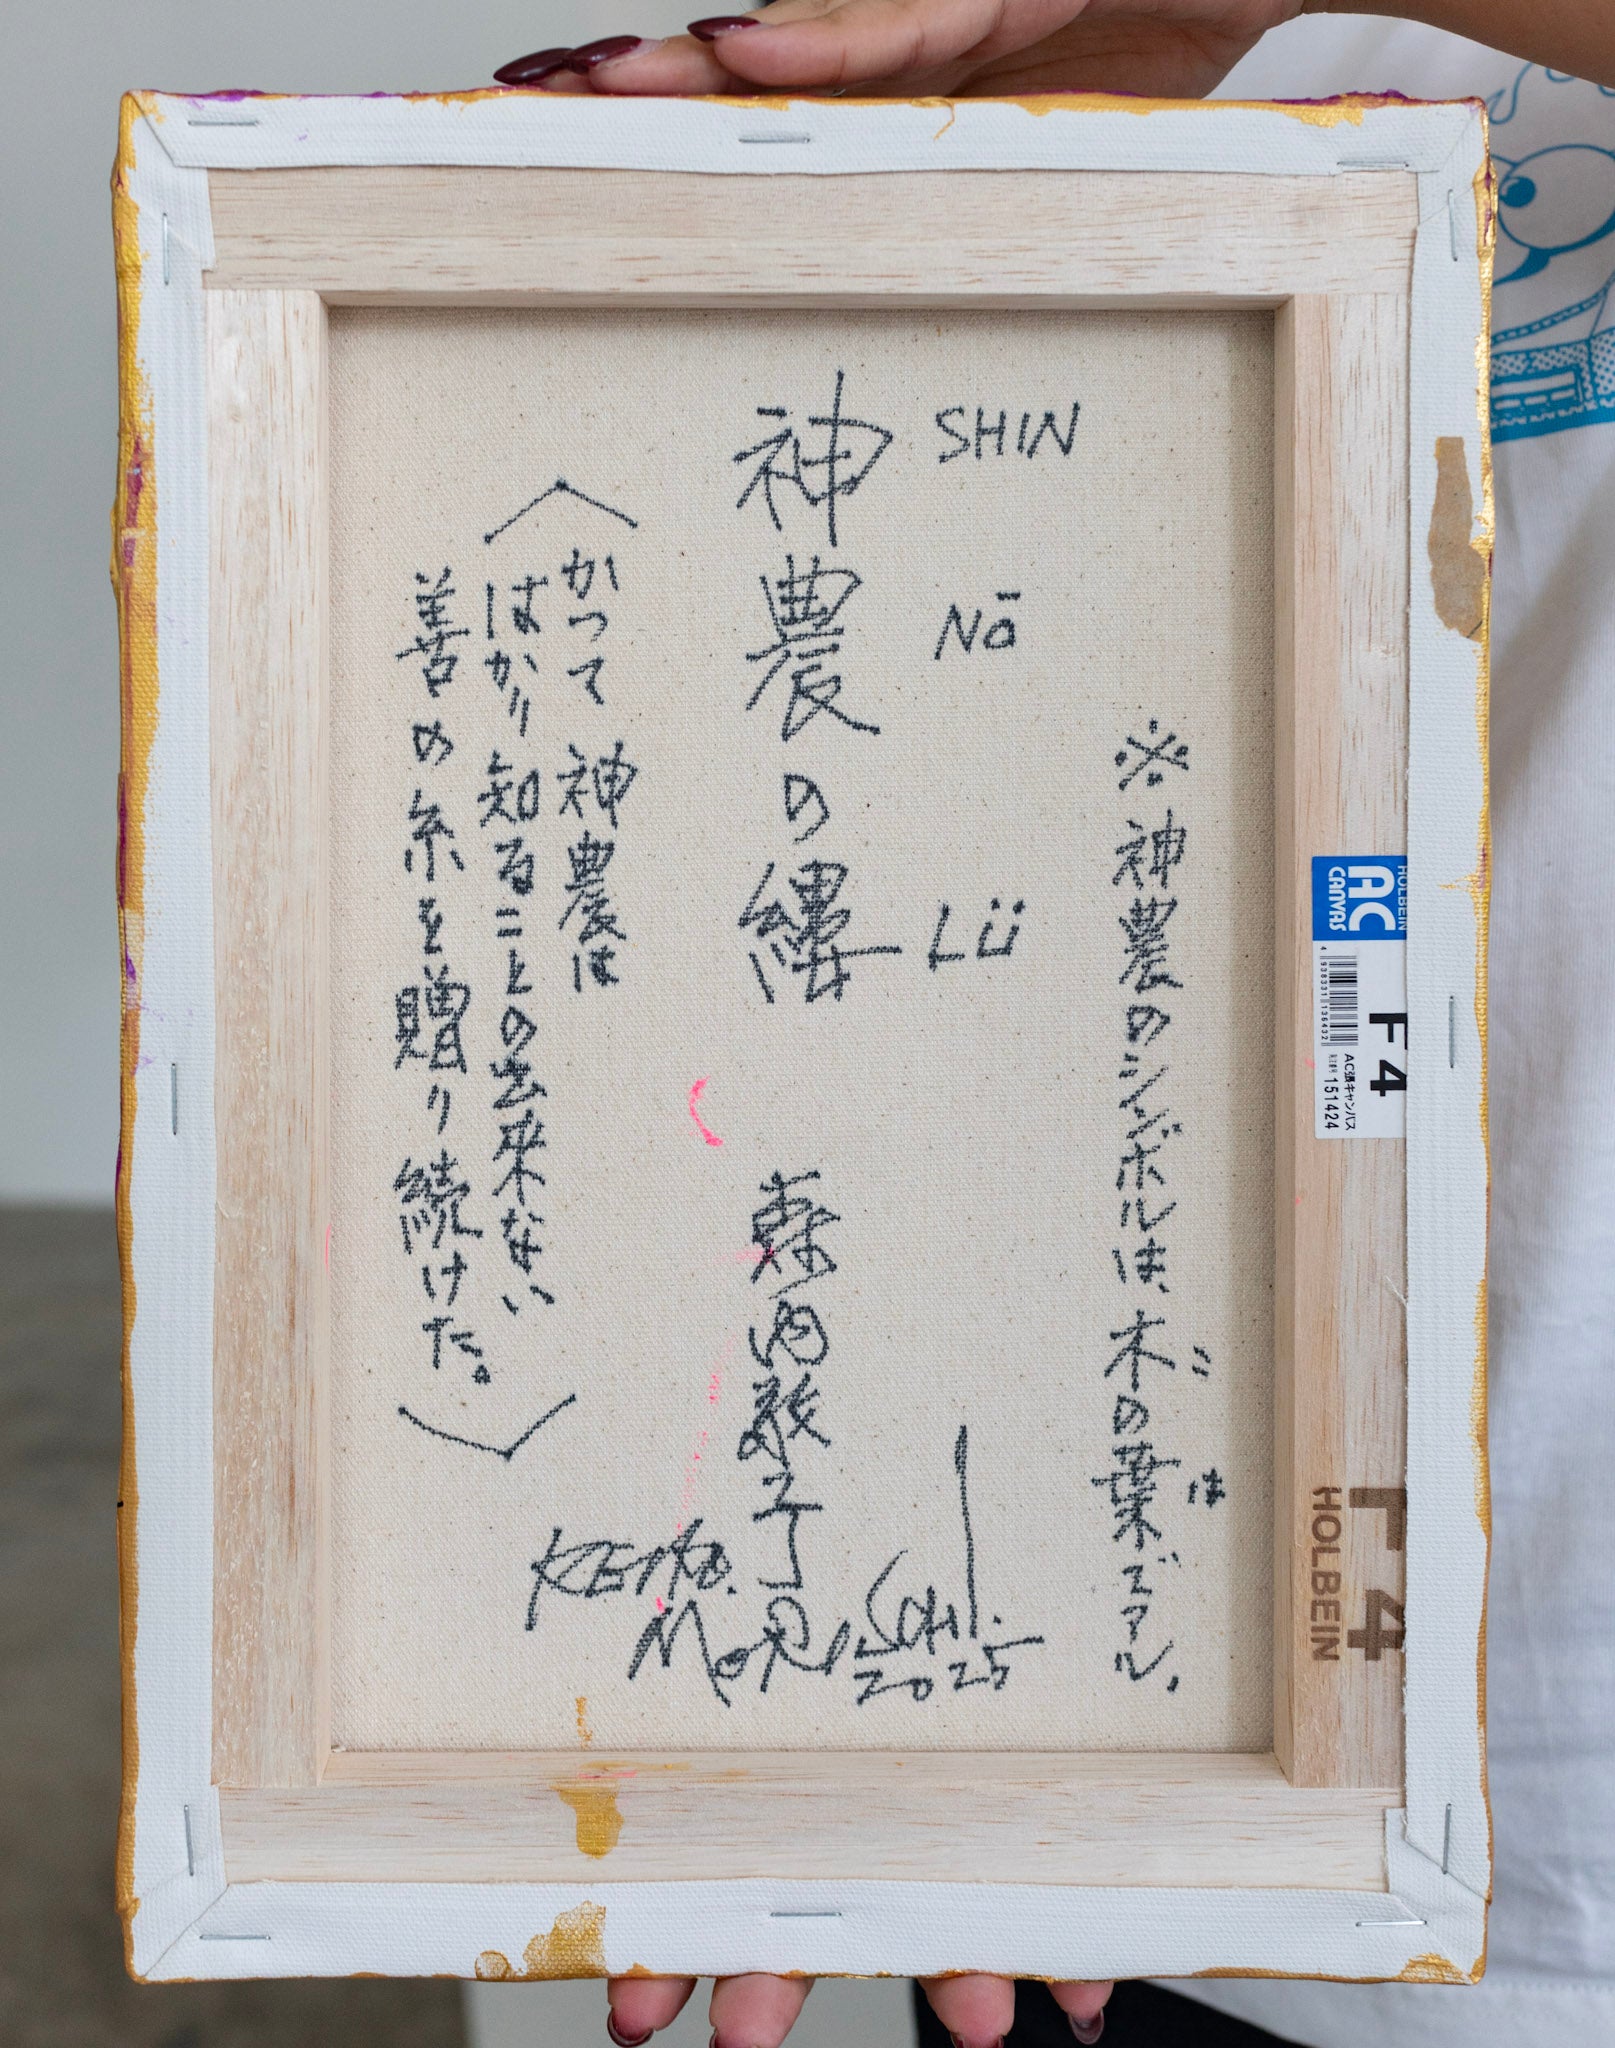 ※神農のシンボルは、木の葉でアル。
こ
は
SHIN
Nō
Lü
神農の縷
森内敬子
KEIKO.
MORIUCHI.
2025
〈かつて 神農は
はかり知ることの出来ない
善の糸を贈り続けた。〉
HOLBEIN
AC
CANVAS
F4
4 938331 136432
AC張キャンバス
151424
F4
HOLBEIN